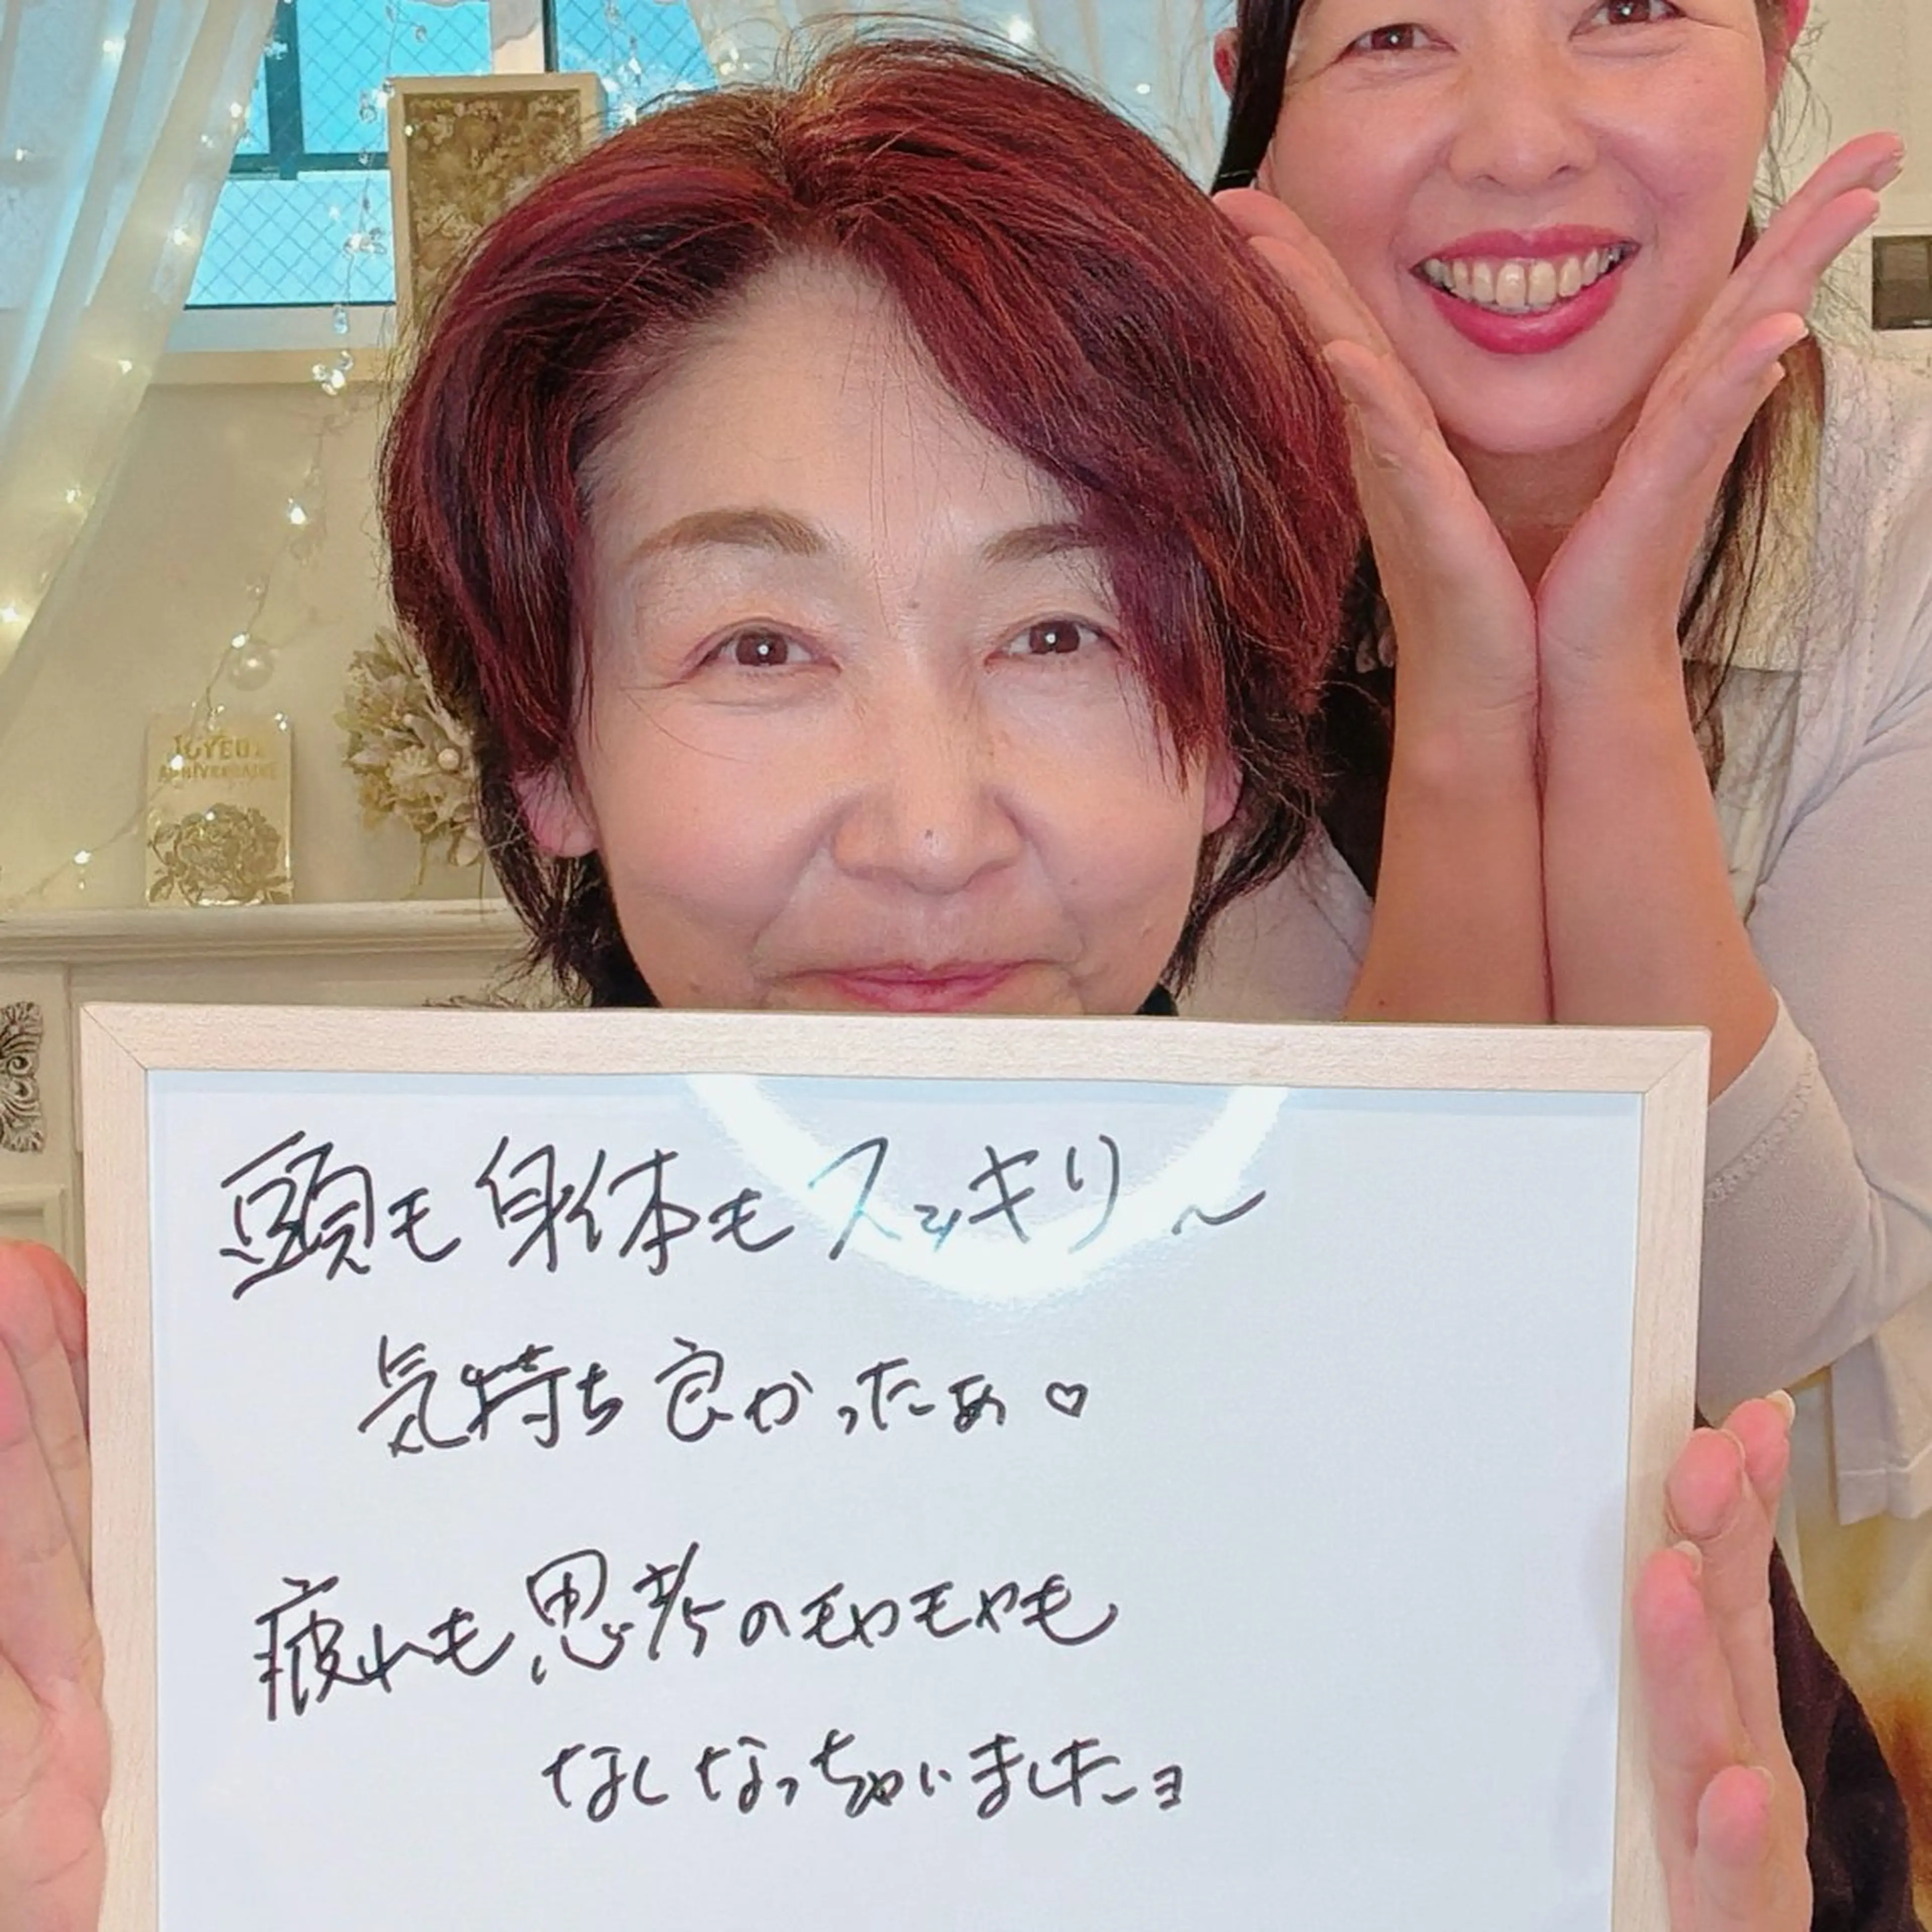 JOYEUX
ANNIVERSAIRE
頭も身体もスッキリ〜
気持ち良かったぁ♡
疲れも思考のモヤモヤも
なしなっちゃいましたョ